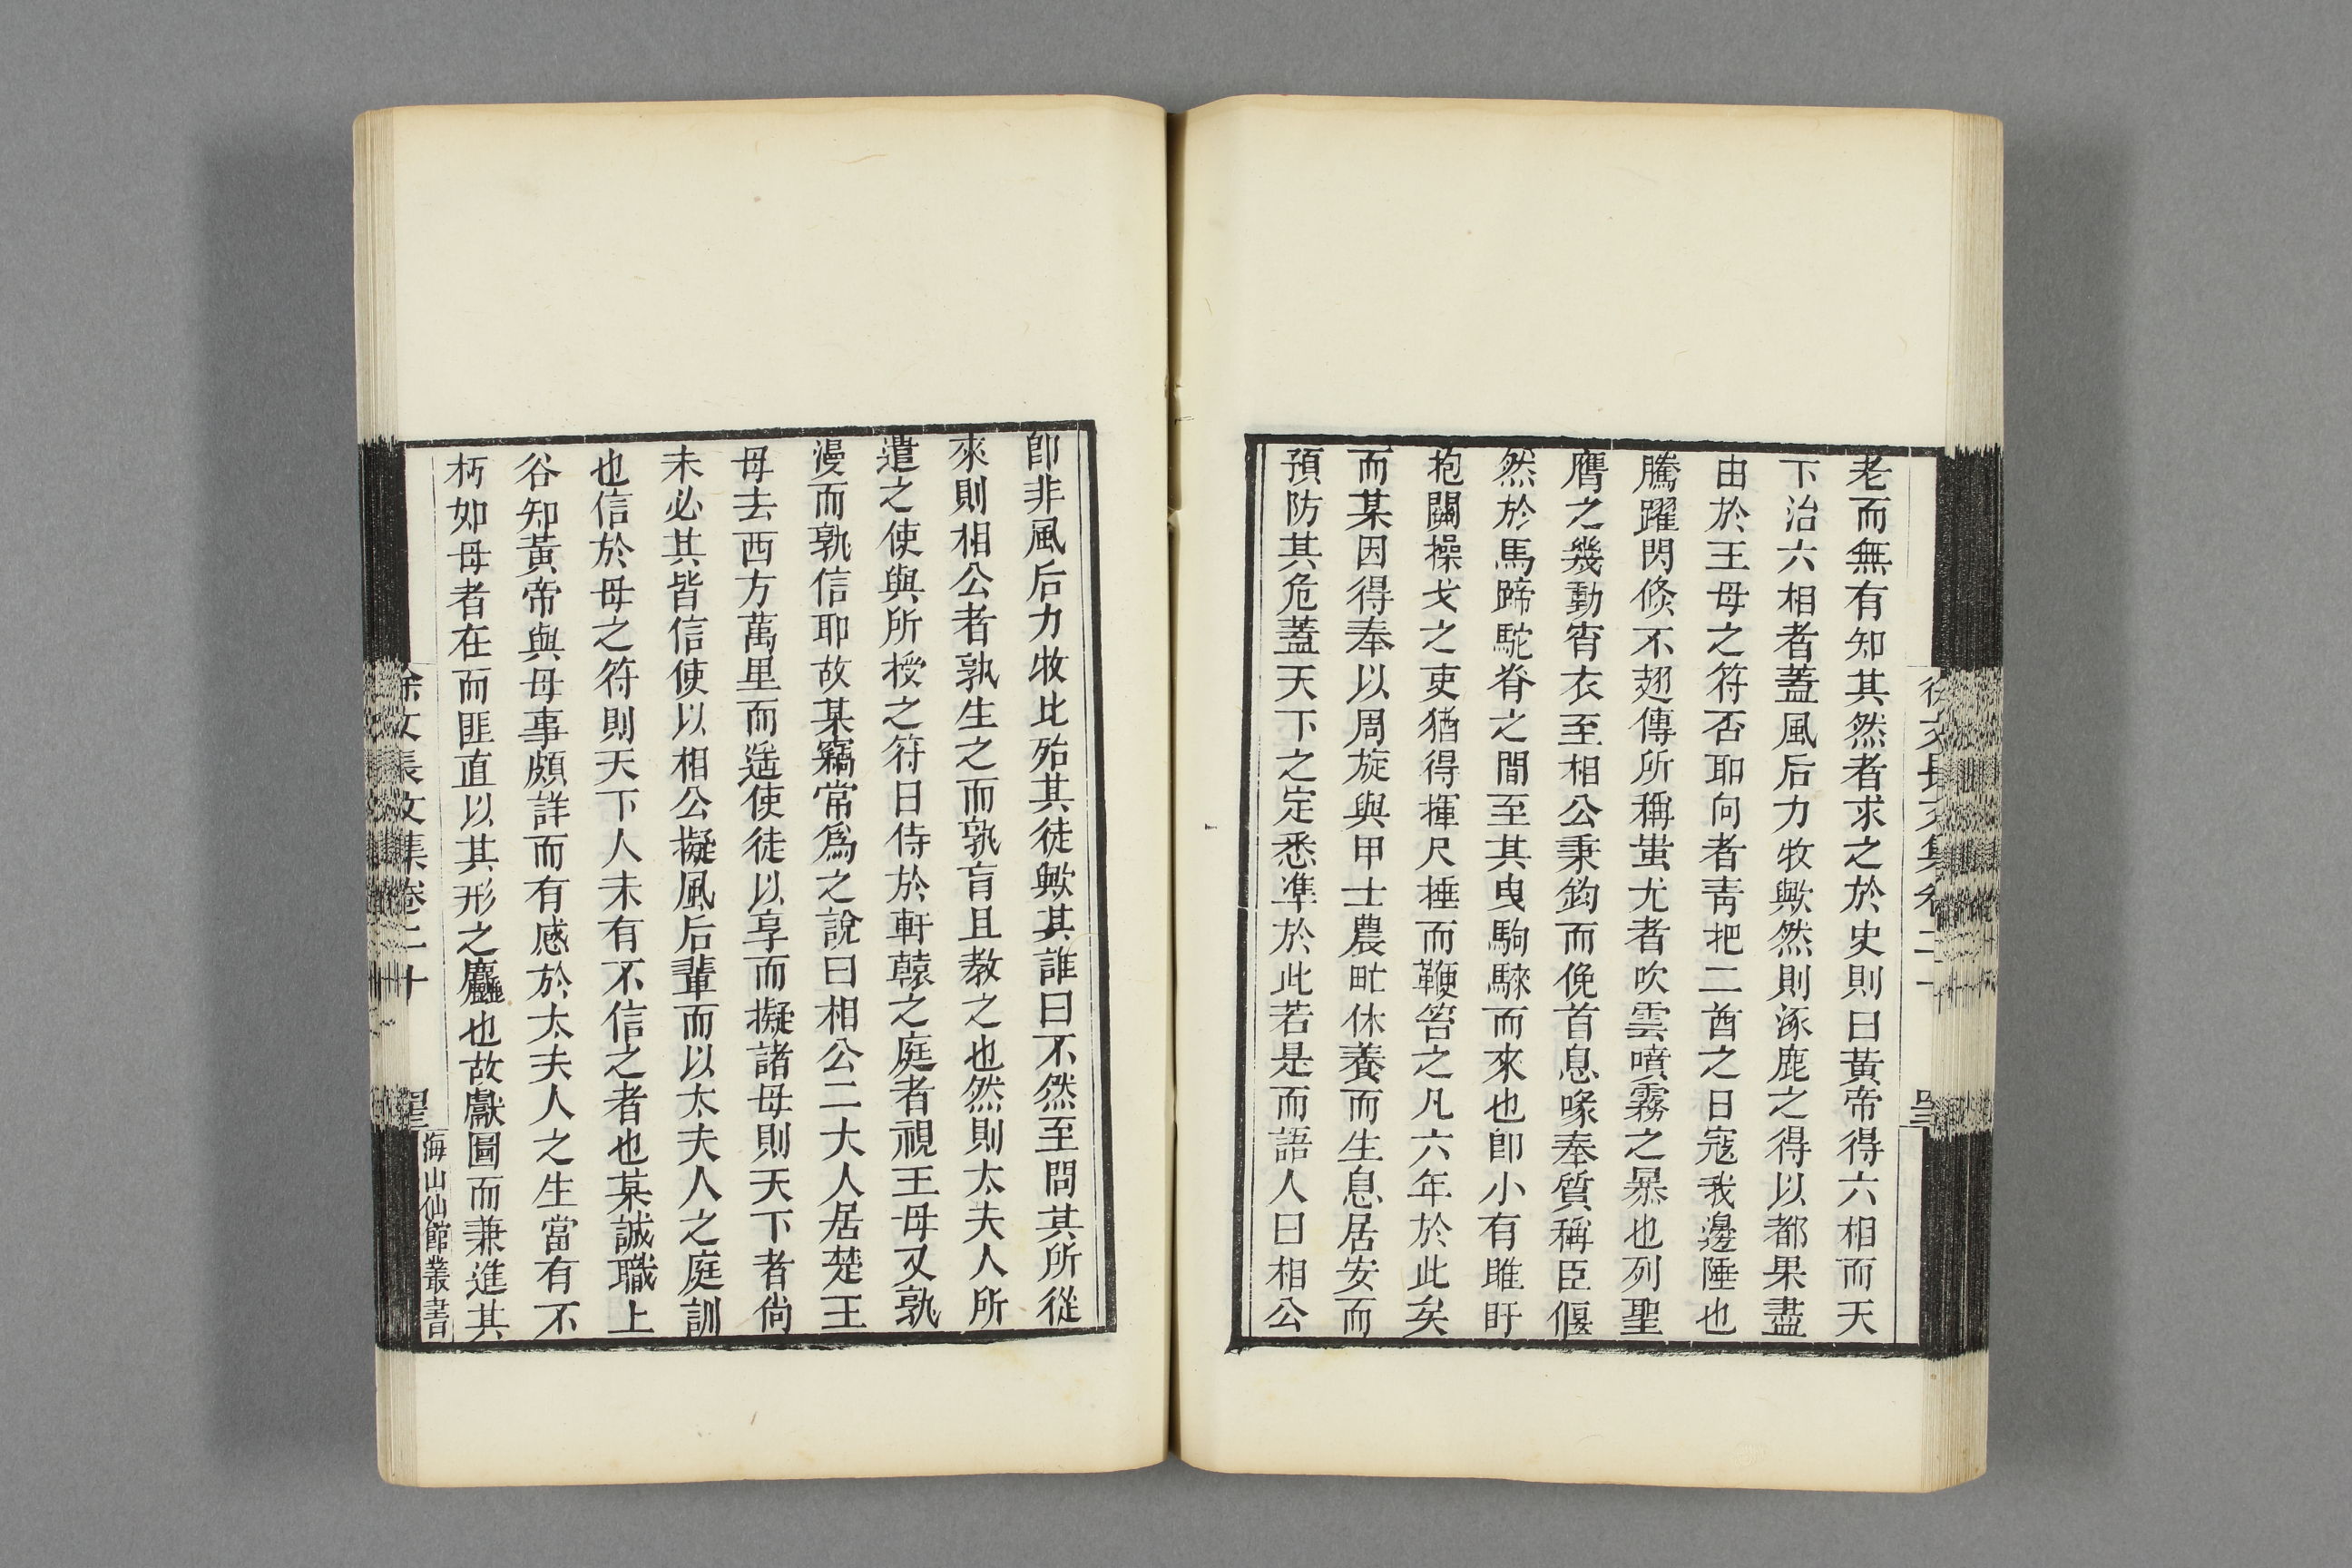 老而無有知其然者求之於史則曰黃帝得六相而天
下治六相者蓋風后力牧歟然則涿鹿之得以都果盡
由於王母之符否耶向者靑把二酋之日寇我邊陲也
騰躍閃倐不翅傳所稱蚩尤者吹雲噴霧之暴也列聖
膺之幾動宵衣至相公秉鈞而俛首息喙奉質稱臣偃
然於馬蹄駝脊之間至其曳駒騋而來也卽小有雎盱
抱關操戈之吏猶得揮尺捶而鞭笞之凡六年於此矣
而某因得奉以周旋與甲士農甿休養而生息居安而
預防其危蓋天下之定悉準於此若是而語人曰相公
卽非風后力牧比殆其徒歟其誰曰不然至問其所從
來則相公者孰生之而孰肓且教之也然則太夫人所
遣之使與所授之符日侍於軒轅之庭者視王母又孰
漫而孰信耶故某竊常爲之說曰相公二大人居楚王
母去西方萬里而遥使徒以享而擬諸母則天下者尙
未必其皆信使以相公擬風后輩而以太夫人之庭訓
也信於母之符則天下人未有不信之者也某誠職上
谷知黃帝與母事頗詳而有感於太夫人之生當有不
朽如母者在而匪直以其形之麤也故獻圖而兼進其
徐文長文集卷二十
海山仙館叢書